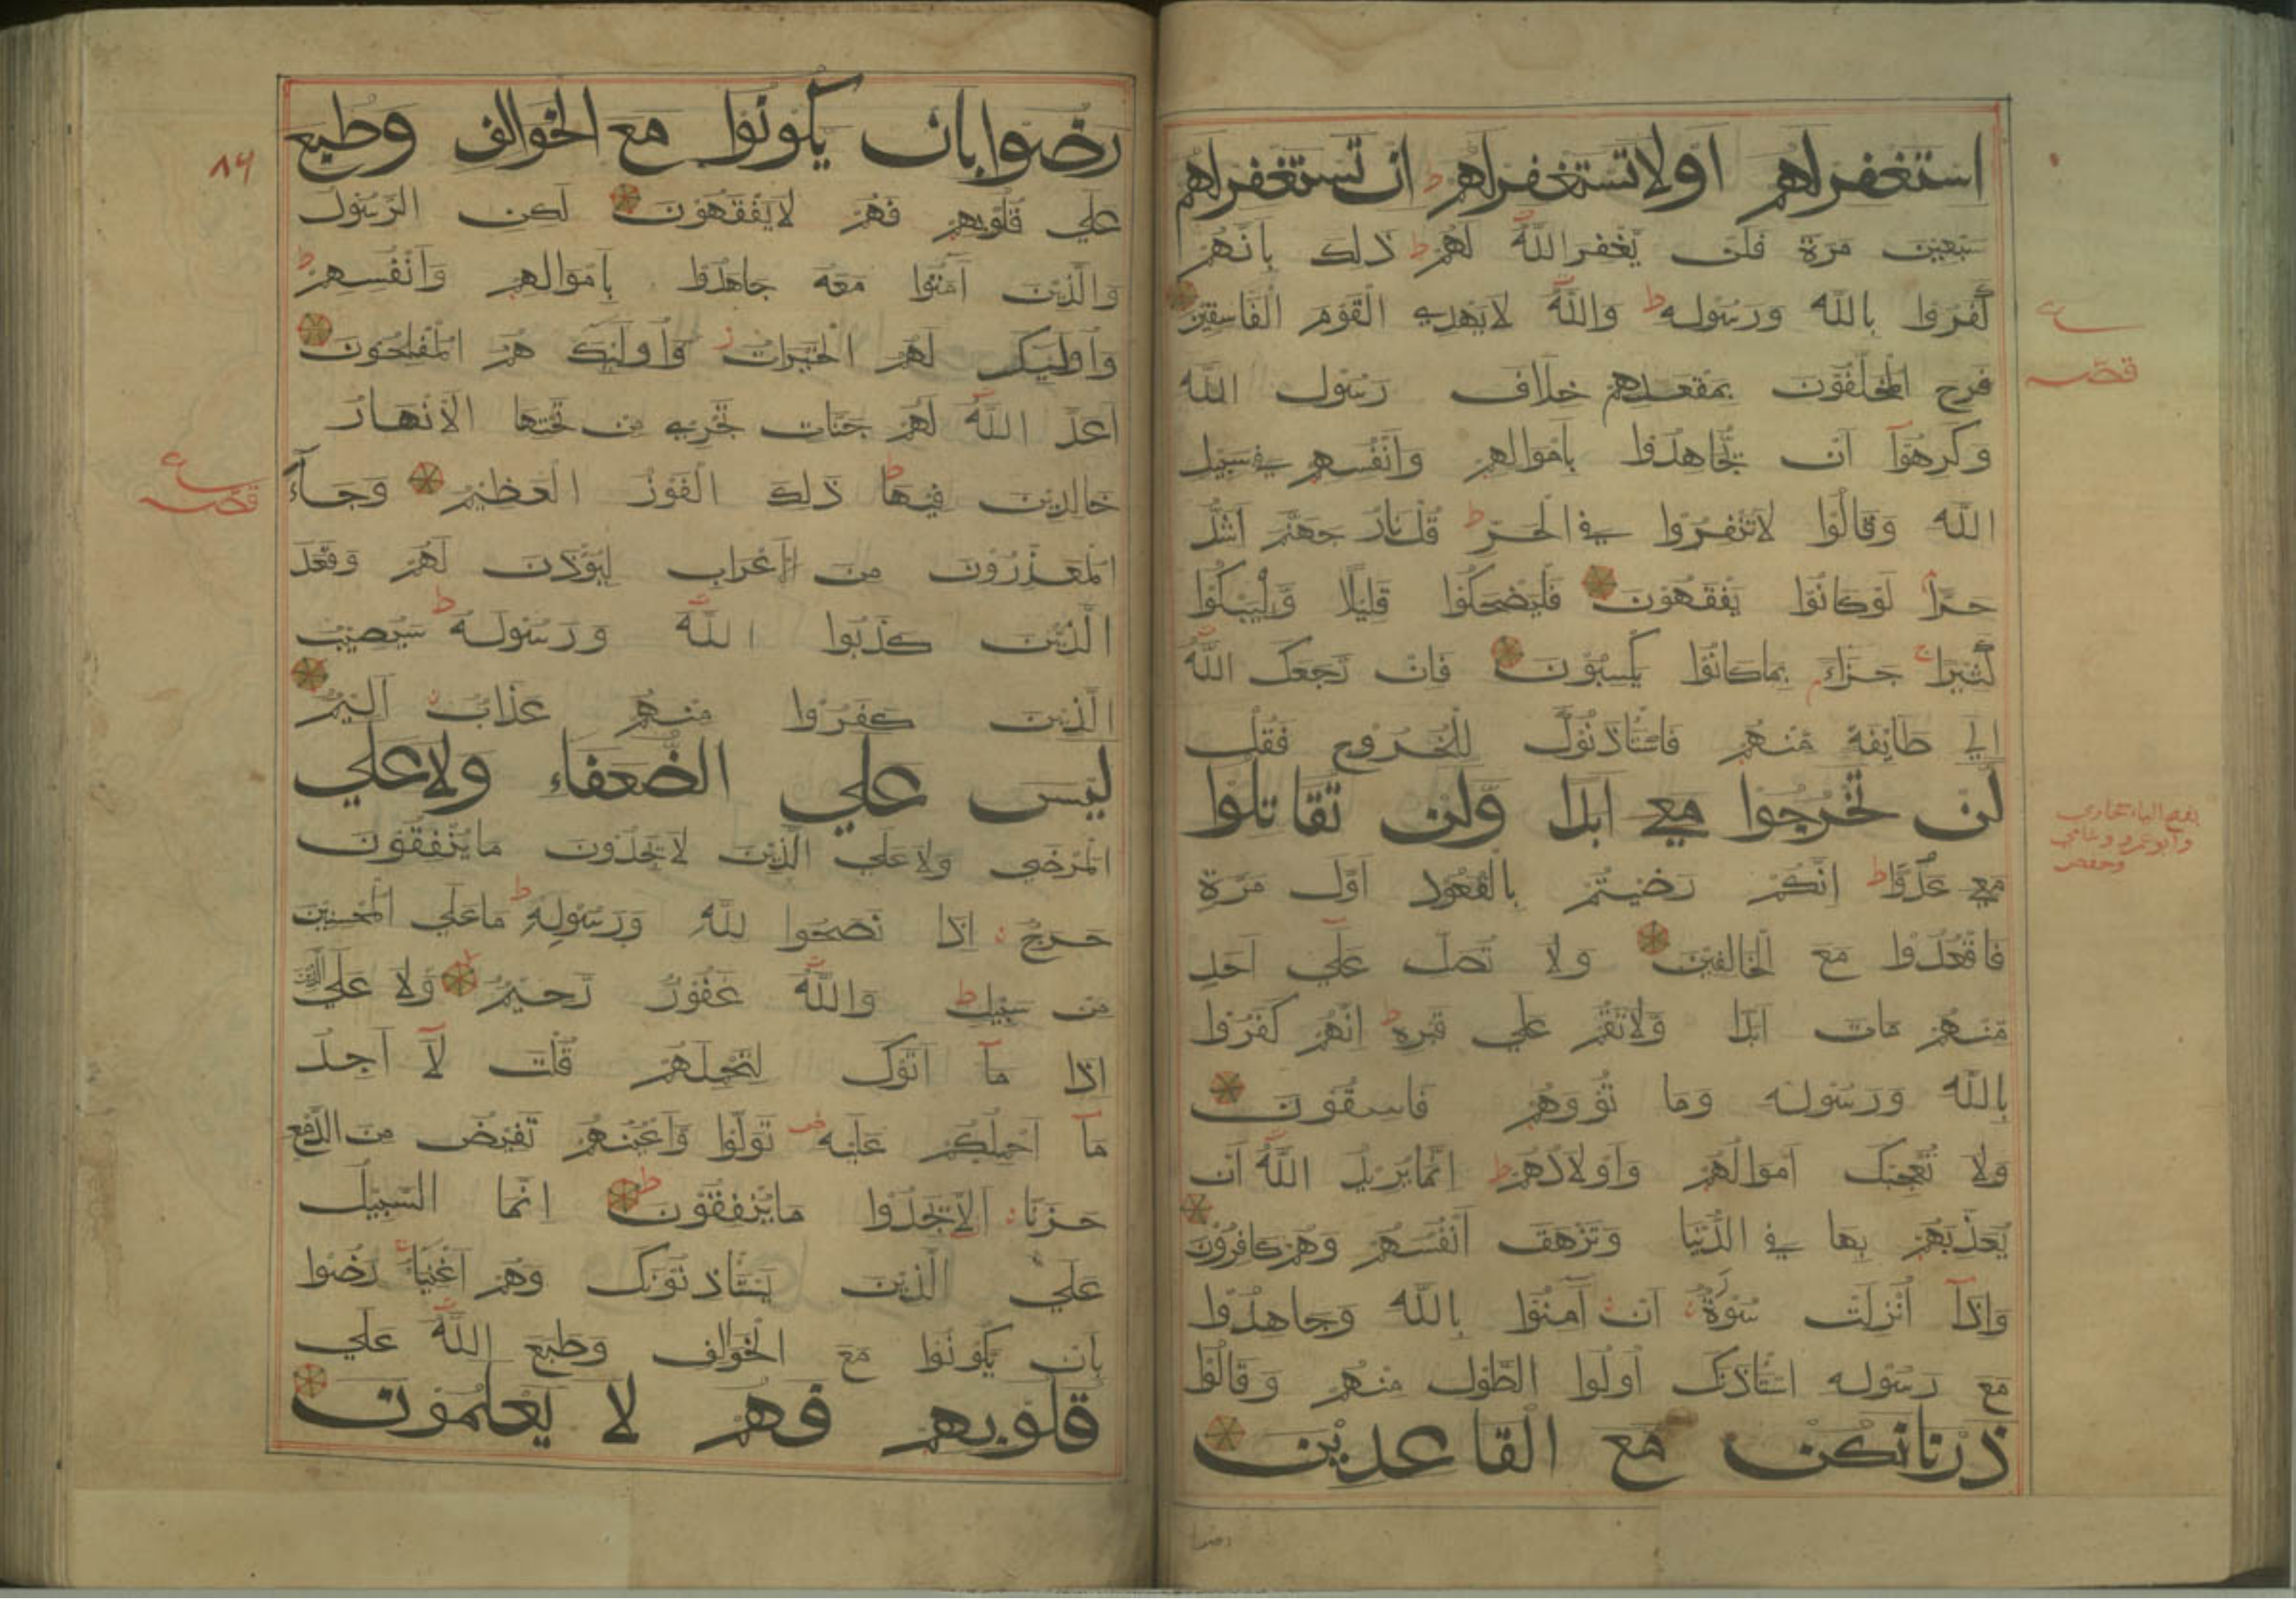 استغفرلهم اولاتستغفرلهم ان تستغفرلهم
سبعين مرة فلن يغفر الله لهم ط ذلك بانهم
كفروا بالله ورسوله ط والله لايهدي القوم الفاسقين
فرح المخلفون بمقعدهم خلاف رسول الله
وكرهوا ان يجاهدوا باموالهم وانفسهم في سبيل
الله وقالوا لاتنفروا في الحر ط قل نار جهنم اشد
حرا لوكانوا يفقهون فليضحكوا قليلا وليبكوا
كثيرا ج جزاء بماكانوا يكسبون فان رجعك الله
الي طايفة منهم فاستاذنوك للخروج فقل
لن تخرجوا معي ابدا ولن تقاتلوا
معي عدوا ط انكم رضيتم بالقعود اول مرة
فاقعدوا مع الخالفين ولا تصل علي احد
منهم مات ابدا ولاتقم علي قبره ط انهم كفروا
بالله ورسوله وما توا وهم فاسقون
ولا تعجبك اموالهم واولادهم ط انمايريد الله ان
يعذبهم بها في الدنيا وتزهق انفسهم وهم كافرون
واذا انزلت سورة ان آمنوا بالله وجاهدوا
مع رسوله استاذنك اولوا الطول منهم وقالوا
ذرنانكن مع القاعدين
رضوا
قصه
بفتح الياء حجازي
وابوعمرو وشامي
وحفص
رضوابان يكونوا مع الخوالف وطبع
علي قلوبهم فهم لايفقهون لكن الرسول
والذين آمنوا معه جاهدوا باموالهم وانفسهم ط
واوليك لهم الخيرات ز واولئك هم المفلحون
اعد الله لهم جنات تجري من تحتها الانهار
خالدين فيها ط ذلك الفوز العظيم وجاء
المعذرون من الاعراب ليؤذن لهم وقعد
الذين كذبوا الله ورسوله ط سيصيب
الذين كفروا منهم عذاب اليم
ليس علي الضعفاء ولاعلي
المرضي ولاعلي الذين لايجدون ماينفقون
حرج اذا نصحوا لله ورسوله ط ماعلي المحسنين
من سبيل ط والله غفور رحيم ولا علي الذين
اذا ما اتوك لتحملهم قلت لا اجد
ما احملكم عليه ص تولوا واعينهم تفيض من الدمع
حزنا الايجدوا ماينفقون ط انما السبيل
علي الذين يستاذنونك وهم اغنياء ج رضوا
بان يكونوا مع الخوالف وطبع الله علي
قلوبهم فهم لا يعلمون
٨٦
قصه